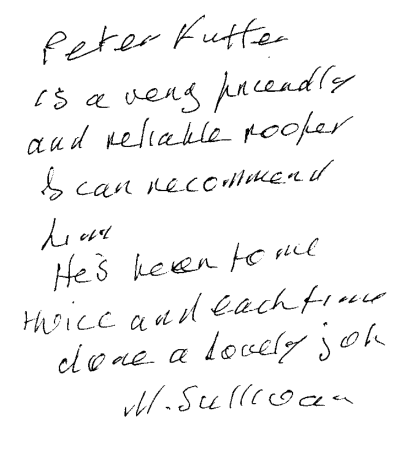 Peter Kutter
is a very friendly
and reliable roofer
I can recommend
him
He's been to me
twice and each time
done a lovely job
M. Sullivan